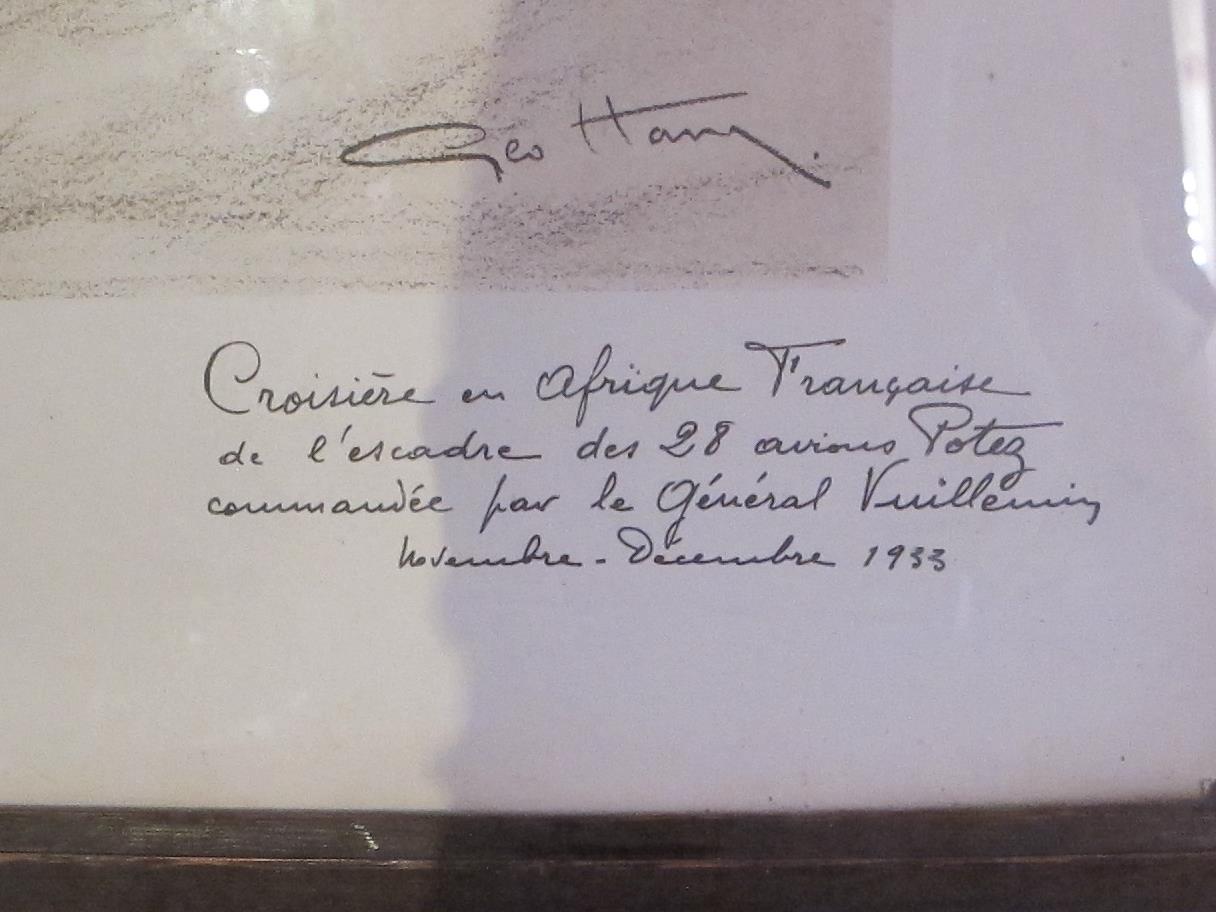 Geo Ham.
Croisière en Afrique Française
de l'escadre des 28 avions Potez
commandée par le Général Vuillemin
novembre - Décembre 1933